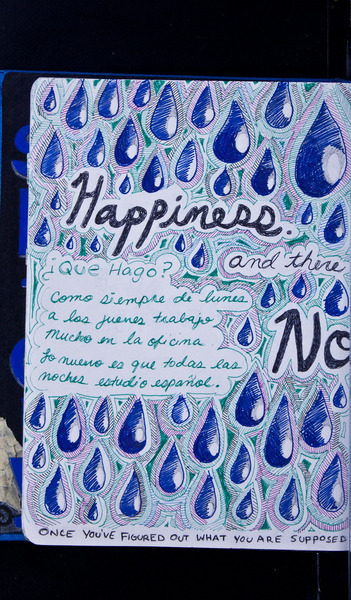 Happiness.
and there
¿Que Hago?
No
Como siempre de lunes
a los jueves trabajo
mucho en la oficina
Lo nuevo es que todas las
noches estudio español.
ONCE YOU'VE FIGURED OUT WHAT YOU ARE SUPPOSED